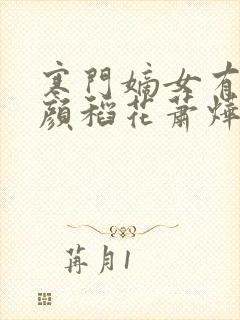 寒門嫡女有
顔稻花蕭燁
苒月1